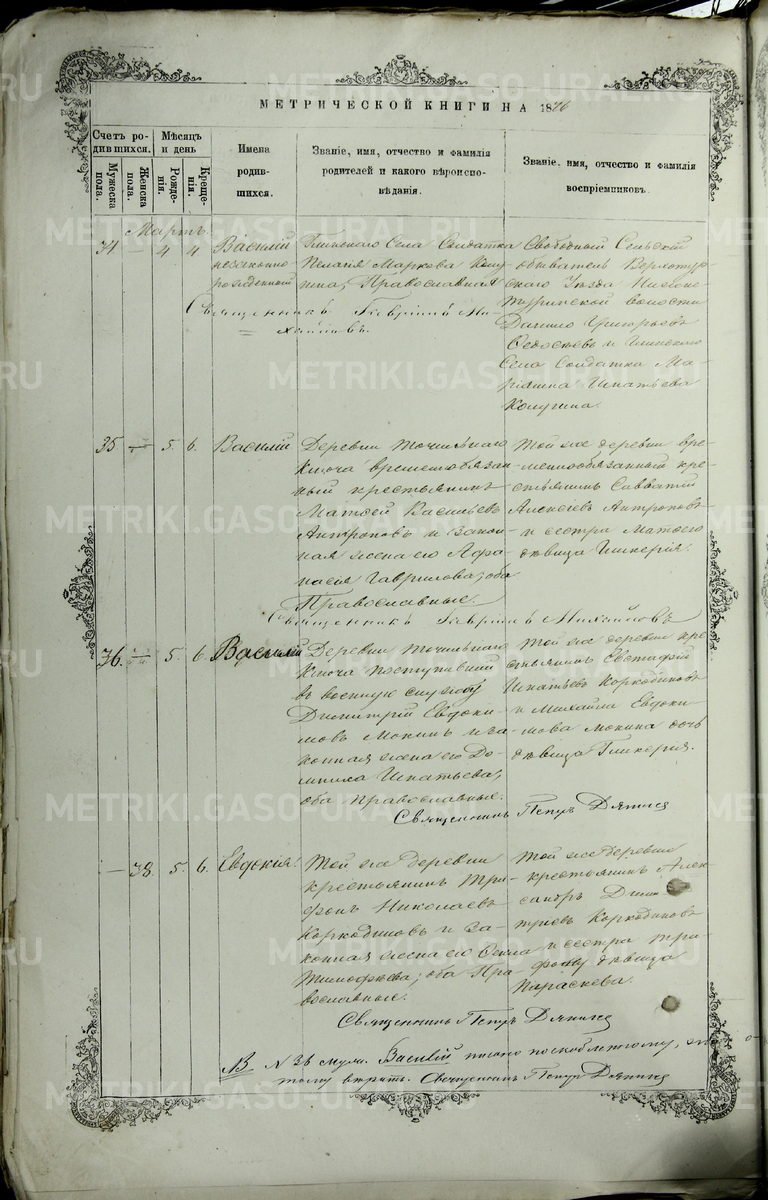 МЕТРИЧЕСКОЙ КНИГИ НА 1876
Счетъ родившихся.
Мужеска пола.
Женска пола.
Мѣсяцъ и день
Рожденія.
Крещенія.
Имена родившихся.
Званіе, имя, отчество и фамилія родителей и какого вѣроисповѣданія.
Званіе, имя, отчество и фамилія воспріемниковъ.
Мартъ.
34 — 4 4
Василій
незаконно
рожденный
Глинскаго Села Солдатка
Пелагія Маркова
Православная
Священникъ Гавріилъ Ми-
хайловъ.
Свободный Сельскій
обыватель Верхотур-
скаго Уѣзда
волости
Данило Григорьевъ
и Глинскаго
Села Солдатка Ма-
ріанна Игнатьева
35 — 5. 6.
Василій
Деревни Точильнаго
Ключа временнообязан-
ный крестьянинъ
Матѳей Васильевъ
Антроповъ и закон-
ная жена его Аѳа-
насія Гаврилова; оба
Православные.
Священникъ Гавріилъ Михайловъ
Той же деревни вре-
меннообязанный кре-
стьянинъ Савватій
Алексѣевъ Антроповъ
и сестра Матѳея
дѣвица Гликерія.
36. — 5. 6.
Василій
Деревни Точильнаго
Ключа поступившій
въ военную службу
Димитрій Евдоки-
мовъ Мокинъ и за-
конная жена его До-
мника Игнатьева,
оба православные.
Той же деревни кре-
стьянинъ Евстафій
Игнатьевъ Коркодиновъ
и Михаила Евдоки-
мова Мокина дочь
дѣвица Гликерія.
Священникъ Петръ Дягилев
— 38 5. 6.
Евдокія
Той же деревни
крестьянинъ Три-
фонъ Николаевъ
Коркодиновъ и за-
конная жена его Ѳекла
Тимофѣева; оба Пра-
вославные.
Той же деревни
крестьянинъ Алек-
сандръ Дими-
тріевъ Коркодиновъ
и сестра Три-
фону дѣвица
Параскева.
Священникъ Петръ Дягилев
NB N 36 муж. Василій писано по скоблетому,
тому вѣрить. Священникъ Петръ Дягилев
METRIKI.GASO-URAL.RU